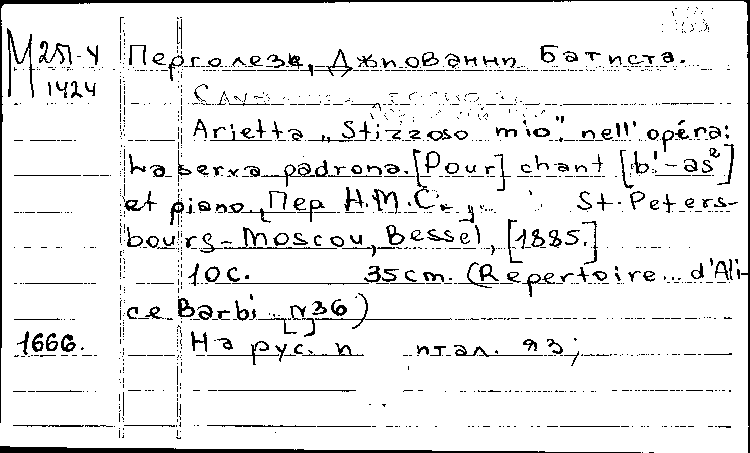 М 251-4 Перголезе, Джиованни Батиста.
1424
Arietta „Stizzoso mio", nell'opéra:
La serva padrona. [Pour] chant [b'-as²]
et piano, [Пер Н.М.С.], St-Peters-
bourg-Moscou, Bessel, [1885.]
10с. 35cm. (Repertoire... d'Ali-
ce Barbi N36)
1666. На рус. и итал. яз;